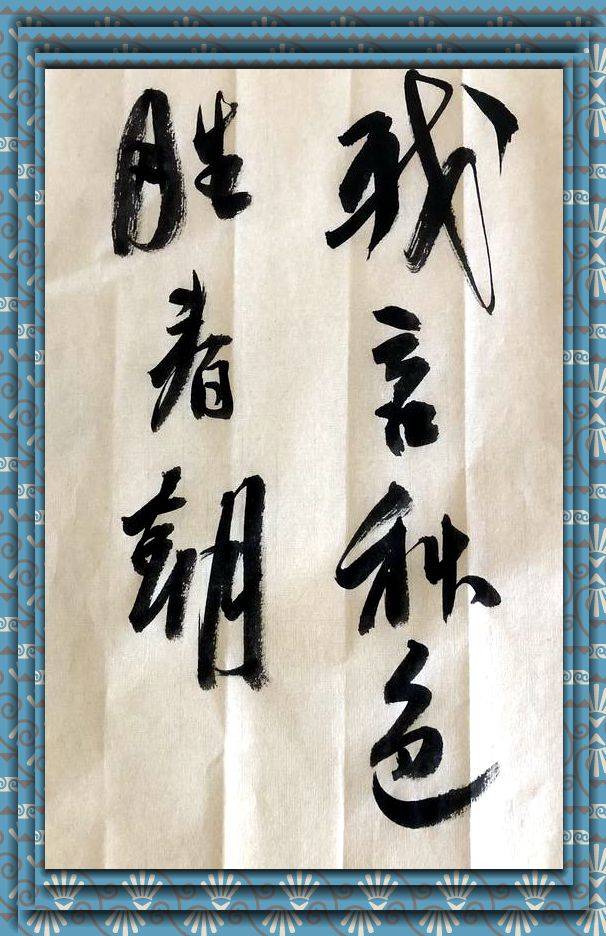 我言秋色
胜春朝